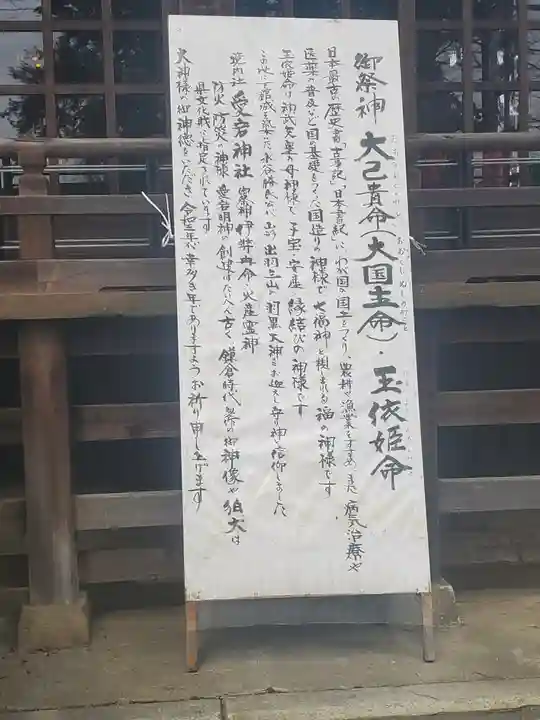 御祭神 大己貴命(大国主命)・玉依姫命
おおなむちのみこと おおくにぬしのみこと たまよりひめのみこと
日本最古の歴史書「古事記」「日本書紀」に わが国の国土をつくり、農耕や漁業をすすめ、また 病気治療や
医薬の普及など 国の基礎をつくった国造りの神様で 七福神と親しまれる 福の神様です
玉依姫命は 神武天皇の母神様で、子宝 安産 縁結びの神様です
この地に館城を築いた水谷勝氏公が 山形 出羽三山の羽黒大神をお迎えし 守り神と信仰しました
境内社 愛宕神社 祭神 伊弉冉命・火産霊神
防火 防災の神様 愛宕明神の創建はたいへん古く 鎌倉時代 製作の御神像や狛犬は
県文化財に指定されています
火神様の御神徳をいただき 令和三年が幸多き年でありますよう お祈り申し上げます